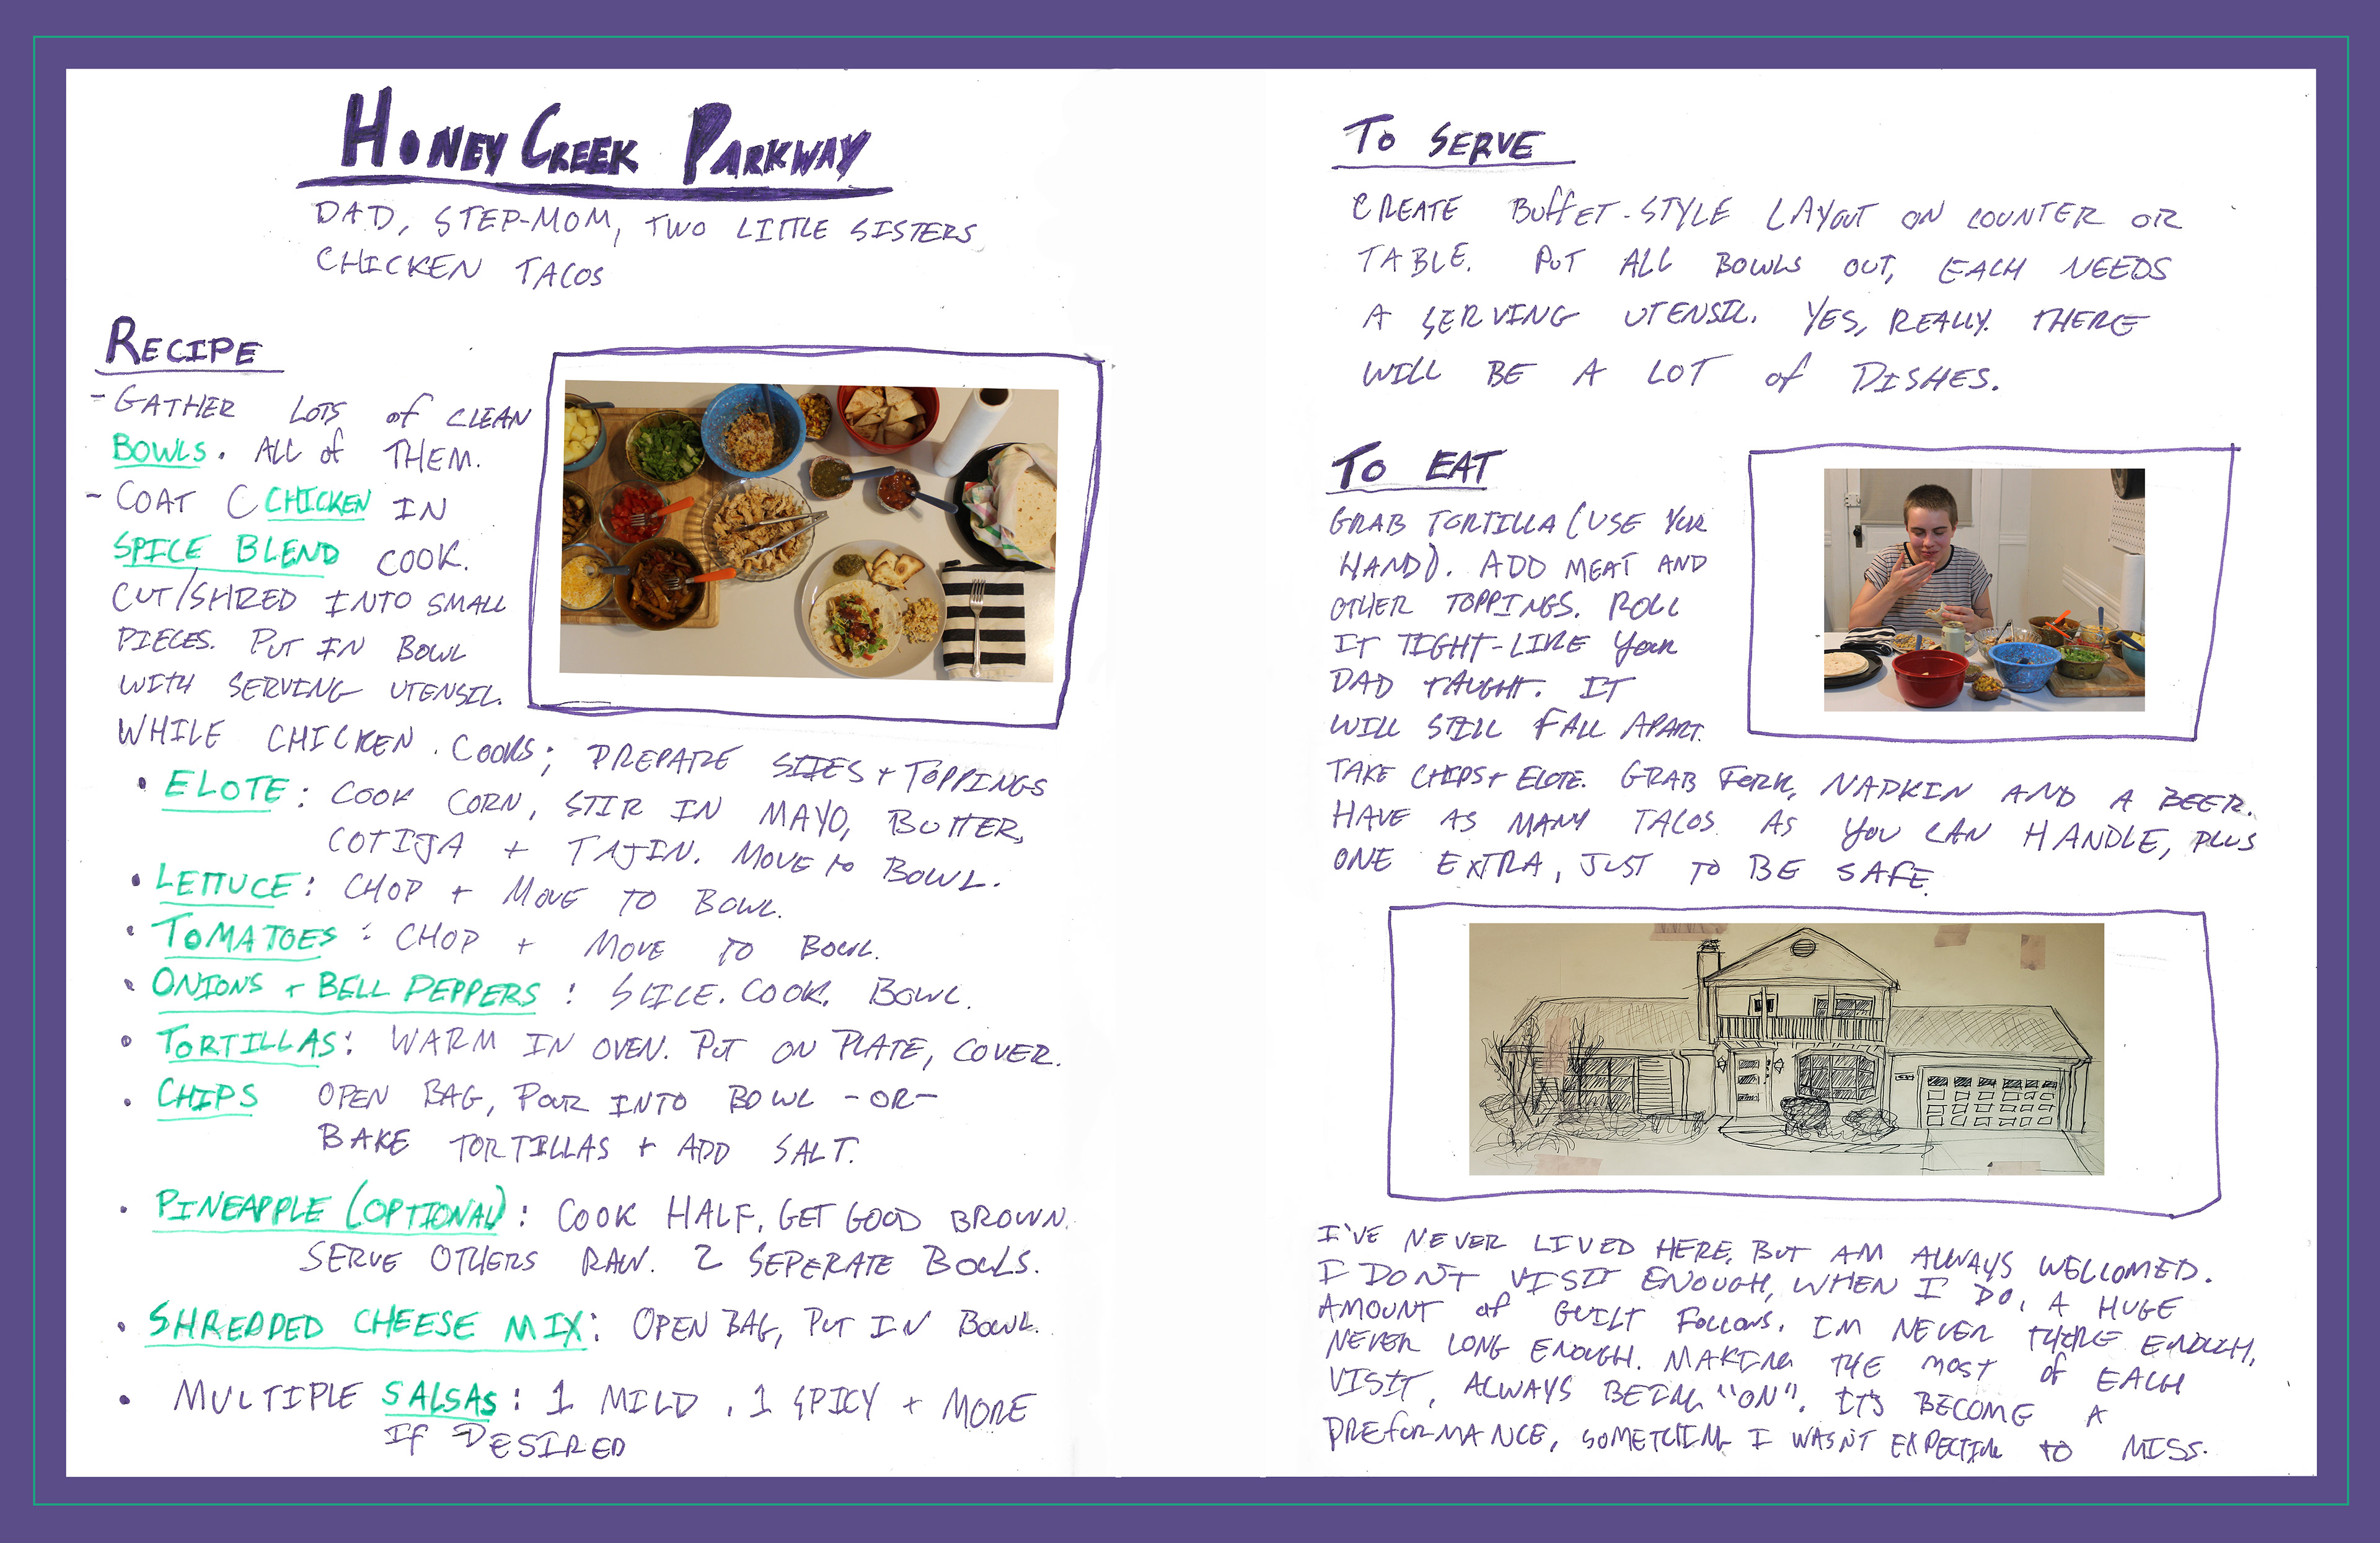 HONEY CREEK PARKWAY
DAD, STEP-MOM, TWO LITTLE SISTERS
CHICKEN TACOS
RECIPE
- GATHER LOTS of CLEAN
BOWLS. ALL of THEM.
- COAT C CHICKEN IN
SPICE BLEND COOK.
CUT/SHRED INTO SMALL
PIECES. PUT IN BOWL
WITH SERVING UTENSIL.
WHILE CHICKEN COOKS; PREPARE SIDES + TOPPINGS
• ELOTE: COOK CORN, STIR IN MAYO, BUTTER,
COTIJA + TAJIN. MOVE to BOWL.
• LETTUCE: CHOP + MOVE TO BOWL.
• TOMATOES: CHOP + MOVE TO BOWL.
• ONIONS + BELL PEPPERS: SLICE. COOK. BOWL.
• TORTILLAS: WARM IN OVEN. PUT ON PLATE, COVER.
• CHIPS OPEN BAG, POUR INTO BOWL -OR-
BAKE TORTILLAS + ADD SALT.
• PINEAPPLE (OPTIONAL): COOK HALF, GET GOOD BROWN.
SERVE OTHERS RAW. 2 SEPERATE BOWLS.
• SHREDDED CHEESE MIX: OPEN BAG, PUT IN BOWL.
• MULTIPLE SALSAS: 1 MILD, 1 SPICY + MORE
If DESIRED
TO SERVE
CREATE BUffET-STYLE LAYOUT ON COUNTER OR
TABLE. PUT ALL BOWLS OUT, EACH NEEDS
A SERVING UTENSIL. YES, REALLY. THERE
WILL BE A LOT of DISHES.
TO EAT
GRAB TORTILLA (USE YOUR
HAND). ADD MEAT AND
OTHER TOPPINGS. ROLL
IT TIGHT-LIKE YOUR
DAD TAUGHT. IT
WILL STILL FALL APART.
TAKE CHIPS + ELOTE. GRAB FORK, NAPKIN AND A BEER.
HAVE AS MANY TACOS AS YOU CAN HANDLE, PLUS
ONE EXTRA, JUST TO BE SAFE.
I'VE NEVER LIVED HERE, BUT AM ALWAYS WELCOMED.
I DON'T VISIT ENOUGH, WHEN I DO, A HUGE
AMOUNT of GUILT FOLLOWS. I'M NEVER THERE ENOUGH,
NEVER LONG ENOUGH. MAKING THE MOST of EACH
VISIT, ALWAYS BEING "ON". IT'S BECOME A
PREfORMANCE, SOMETHING I WASN'T EXPECTING TO MISS.